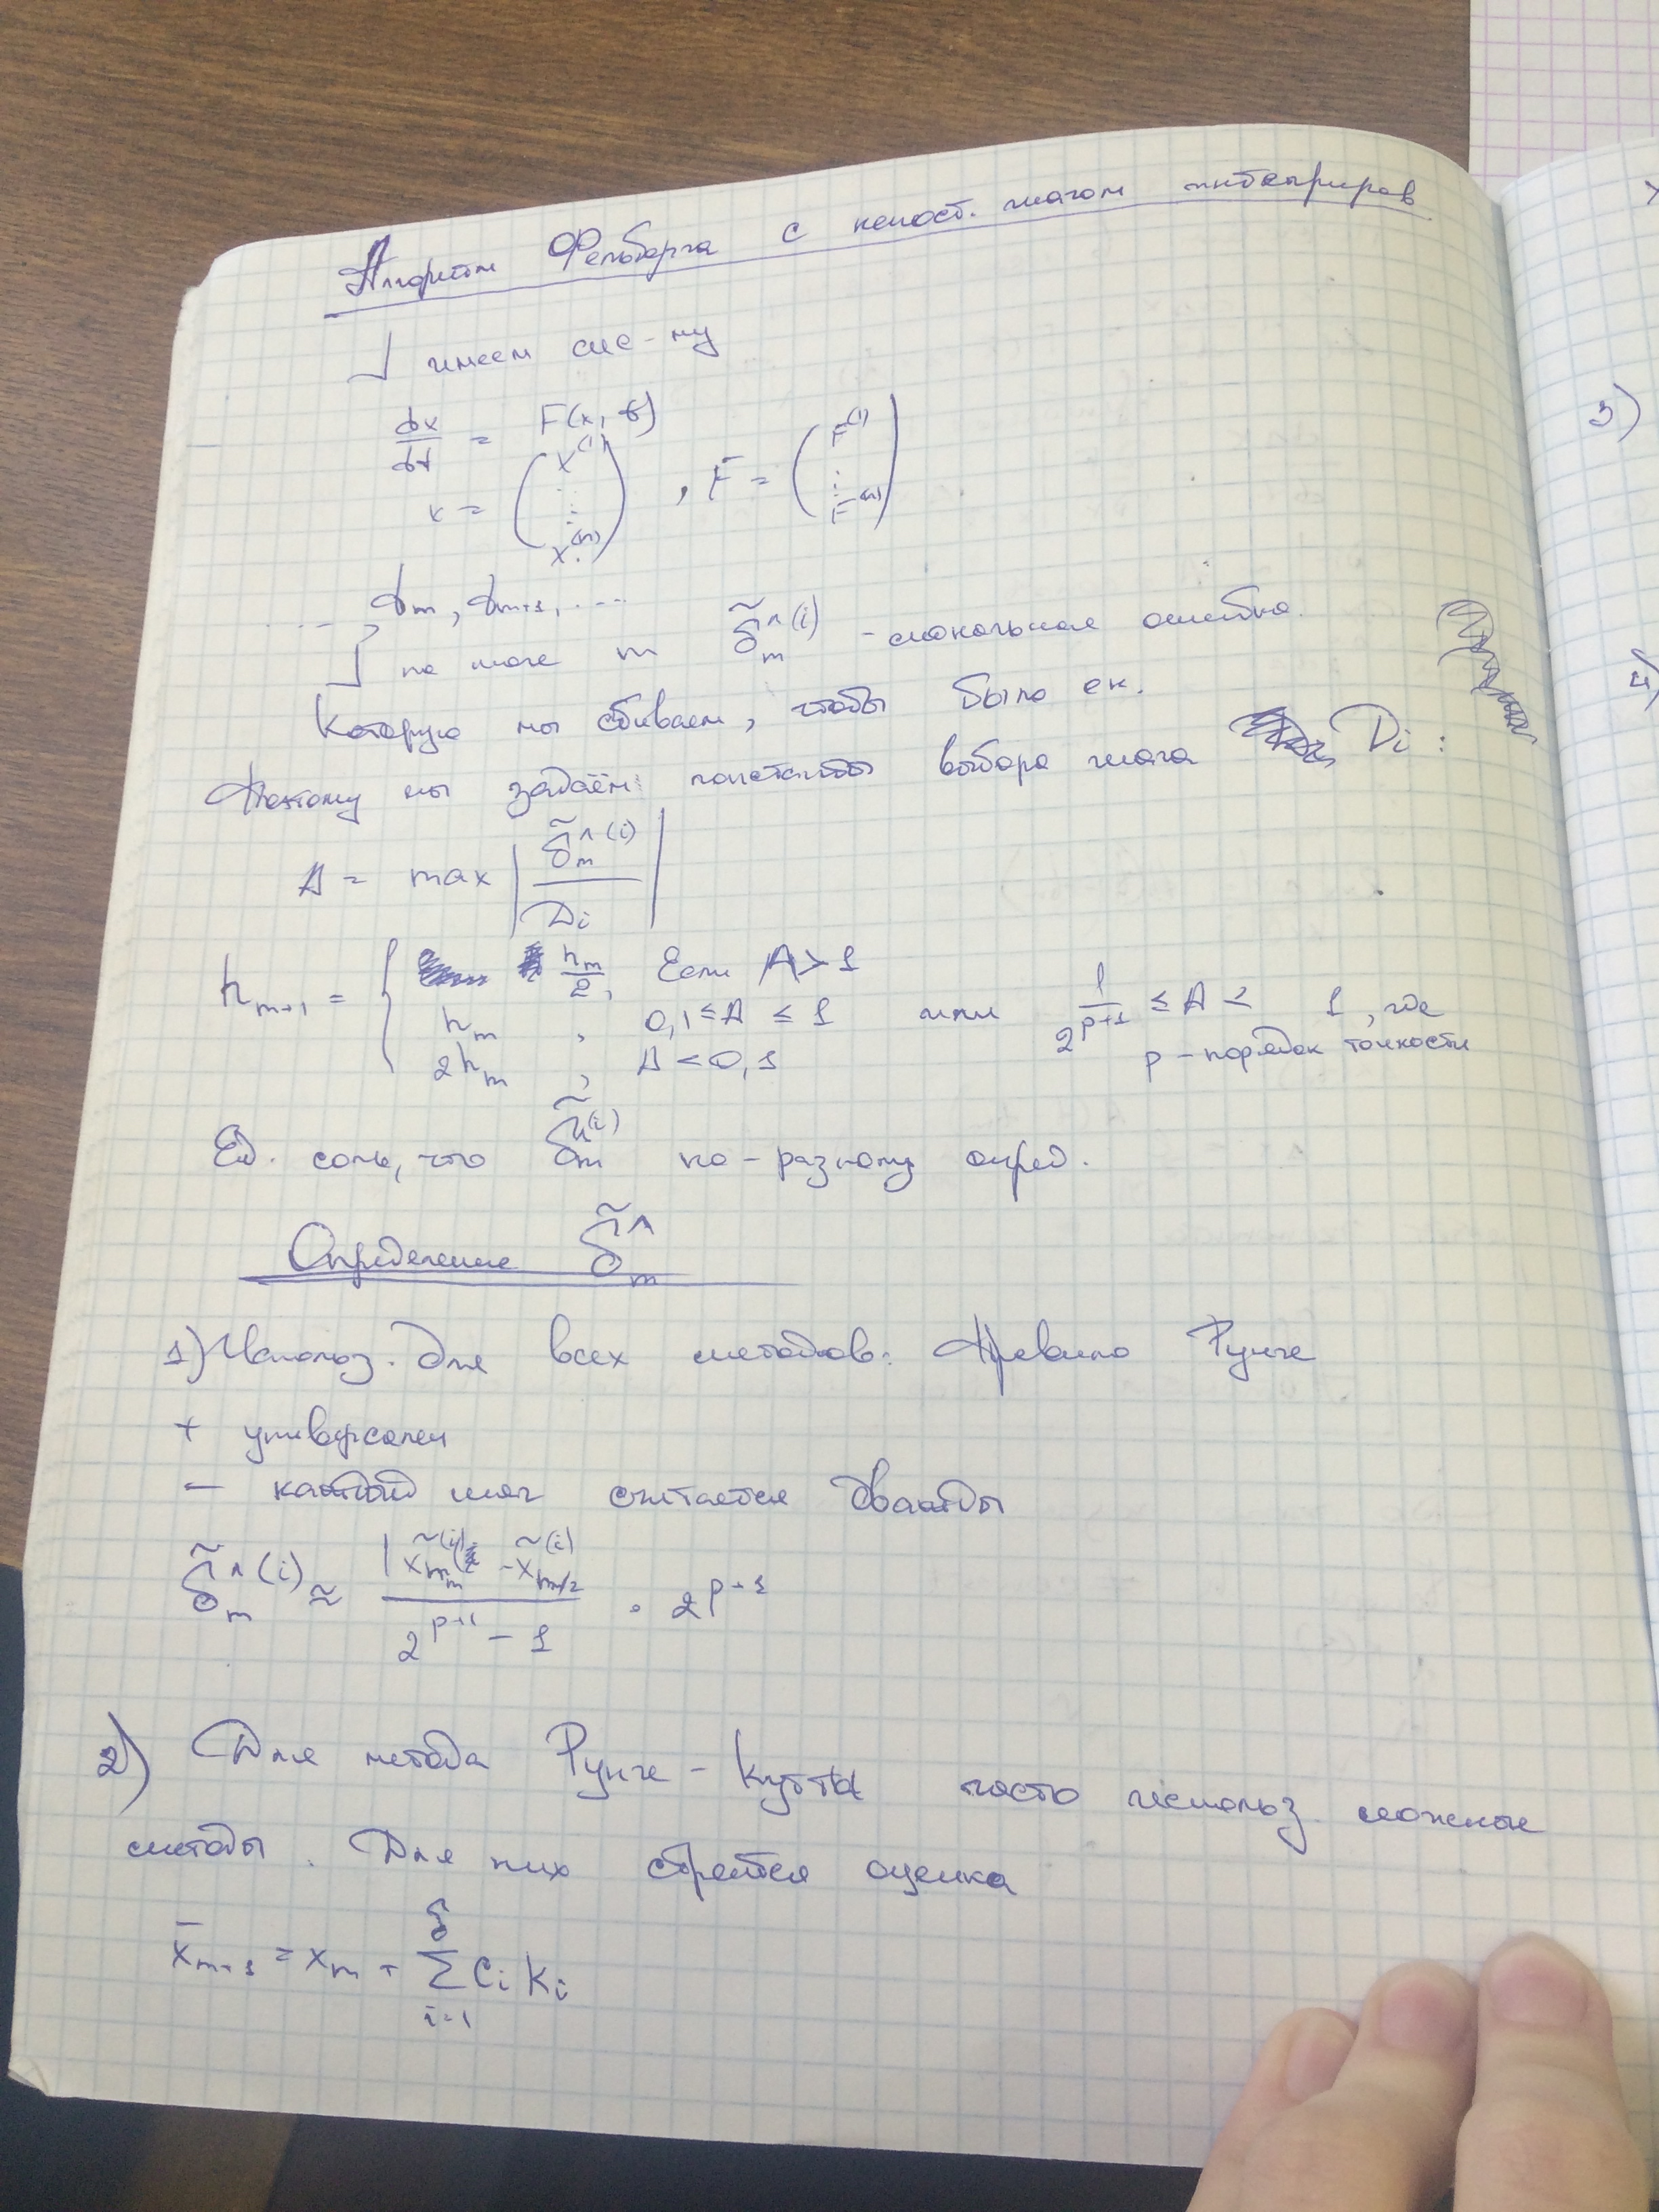 Алгоритм Фельберга с непост. шагом интегриров
] имеем сис-му
dx/dt = F(x, t)
x = (x^(1) ⋮ x^(n)), F̄ = (F^(1) ⋮ F^(n))
...., t_m, t_{m+1}, ...
] на шаге m δ̃_m^{л(i)} - локальная ошибка.
Которую мы сбиваем, чтобы было ок.
Поэтому мы задаём константы выбора шага D_i :
A = max | δ̃_m^{л(i)} / D_i |
h_{m+1} = { h_m/2, Если A > 1
h_m , 0,1 ≤ A ≤ 1 или 1/2^{p+1} ≤ A < 1, где
2h_m , A < 0,1 p - порядок точности
Ед. соль, что δ̃_m^{л(i)} по-разному опред.
Определение δ̃_m^л
1) Использ. для всех методов: Правило Рунге
+ универсален
- каждый шаг считается дважды
δ̃_m^{л(i)} ≈ |x̃_{h_m}^{(i)} - x̃_{h_m/2}^{(i)} / (2^{p+1} - 1) · 2^{p+1}
2) Для метода Рунге-Кутты часто использ. вложенные
методы. Для них строится оценка
x̄_{m+1} = x_m + Σ_{i=1} C_i K_i
3)
4)